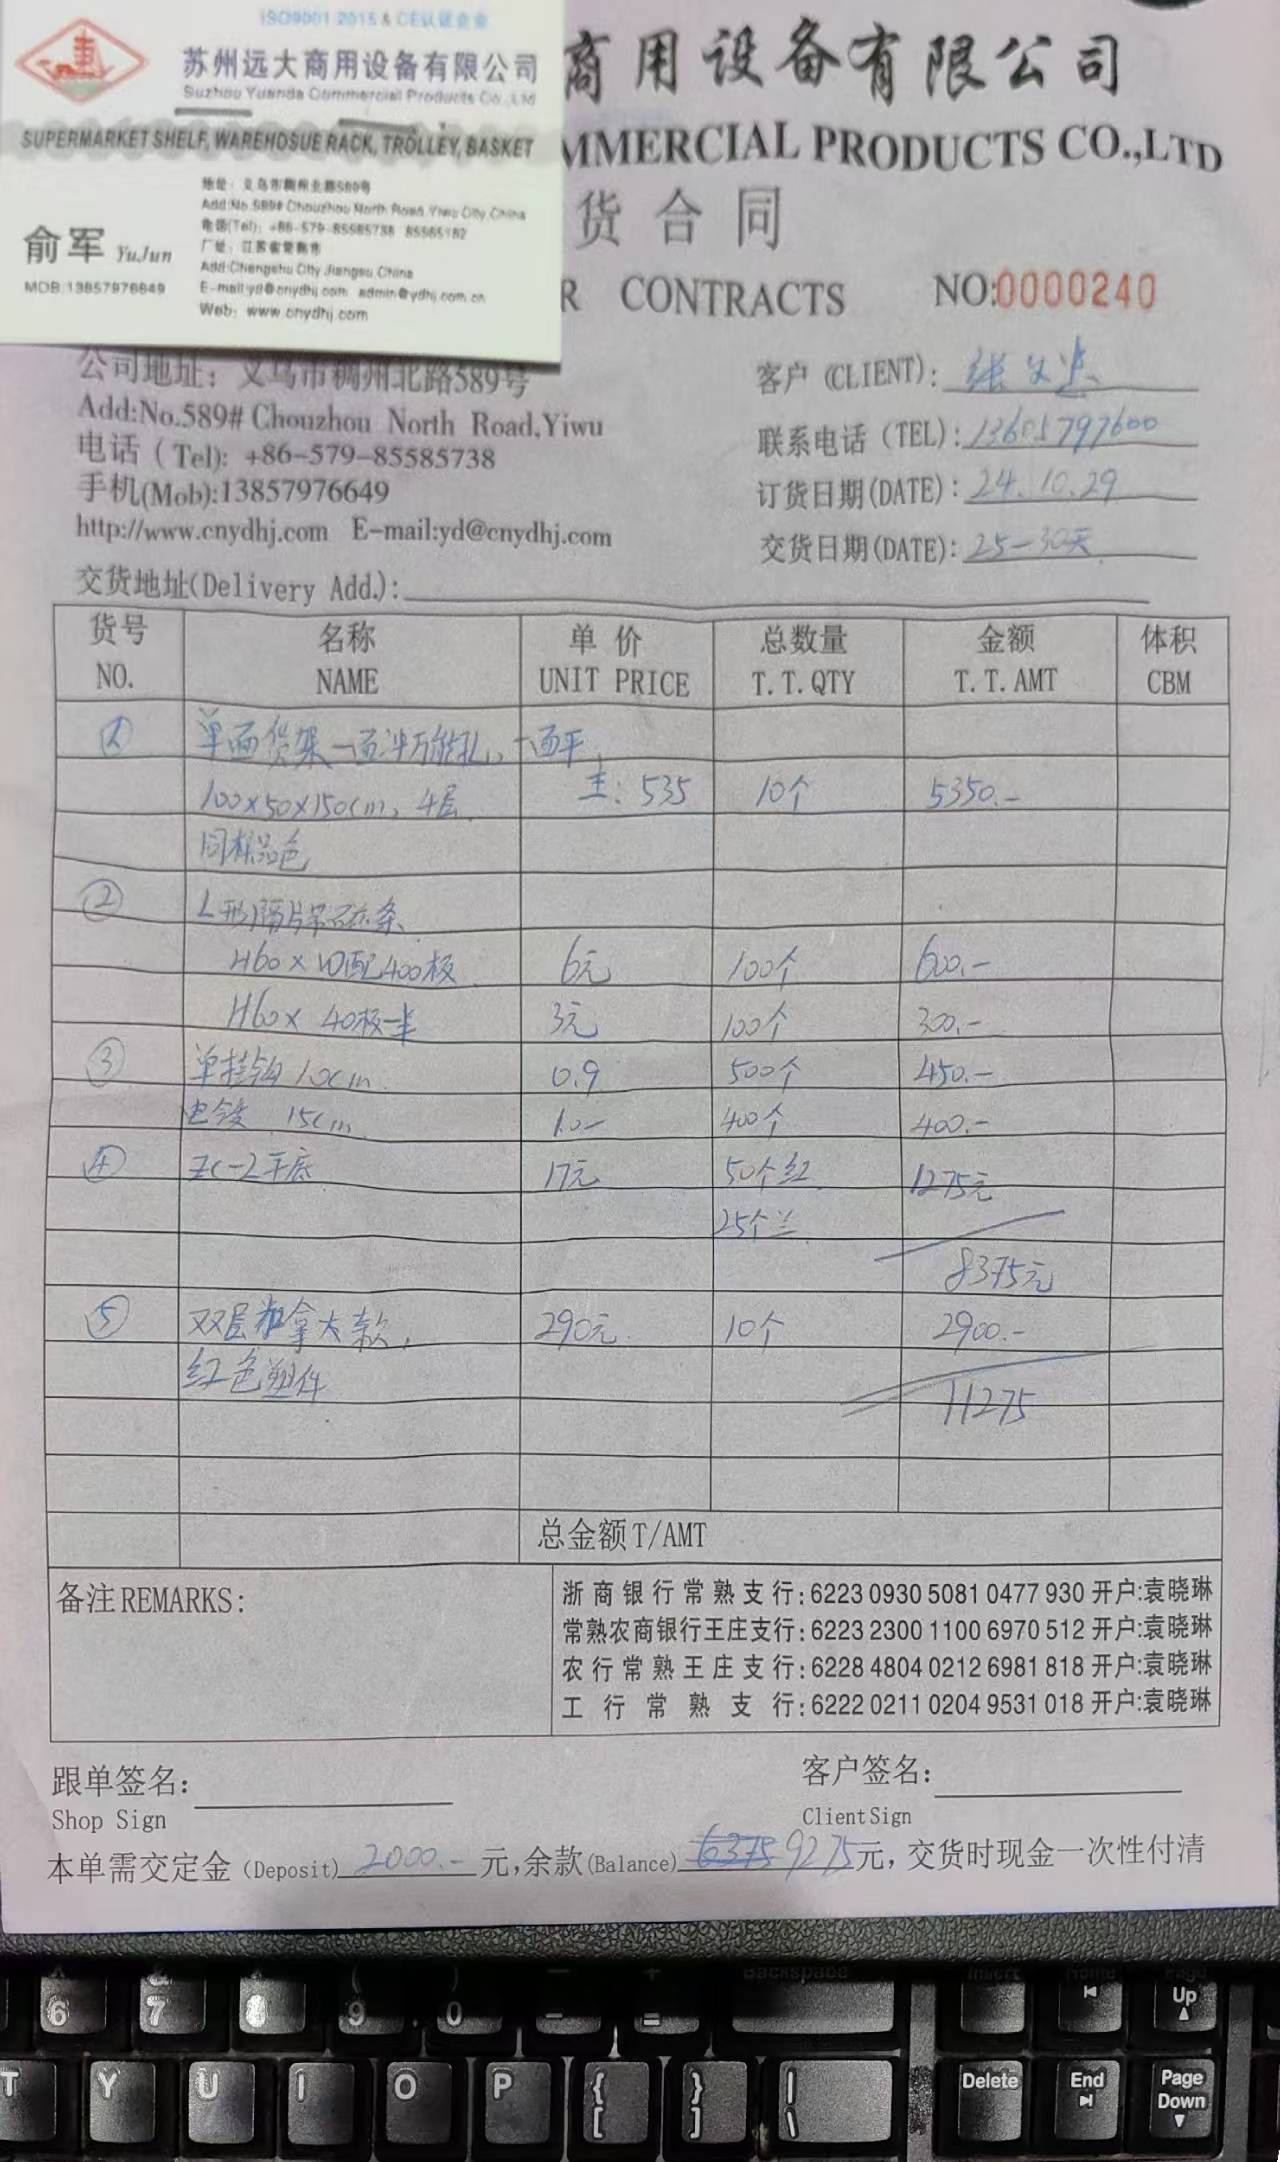 ISO9001:2015 & CE认证企业
苏州远大商用设备有限公司
Suzhou Yuanda Commercial Products Co.,Ltd
SUPERMARKET SHELF, WAREHOSUE RACK, TROLLEY, BASKET
地址：义乌市稠州北路589号
Add:No.589# Chouzhou North Road, Yiwu City, China
电话(Tel): +86-579-85585738 85565182
厂址：江苏省常熟市
Add:Changshu City Jiangsu, China
E-mail:yd@cnydhj.com admin@ydhj.com.cn
Web: www.cnydhj.com
俞军 YuJun
MOB:13857976649
商用设备有限公司
MMERCIAL PRODUCTS CO.,LTD
货合同
R CONTRACTS
NO:0000240
公司地址：义乌市稠州北路589号
Add:No.589# Chouzhou North Road,Yiwu
电话（Tel): +86-579-85585738
手机(Mob):13857976649
http://www.cnydhj.com E-mail:yd@cnydhj.com
客户 (CLIENT): 张
联系电话 (TEL): 13605797600
订货日期(DATE): 24.10.29
交货日期(DATE): 25-30天
交货地址(Delivery Add.):
货号 名称 单价 总数量 金额 体积
NO. NAME UNIT PRICE T.T.QTY T.T.AMT CBM
① 单面货架一面冲万能孔、一面平
100×50×150cm, 4层 主: 535 10个 5350.-
同样品色
② L形隔片带磁条
H60×配400板 6元 100个 600.-
H60× 40板一半 3元 100个 300.-
③ 单挂钩 10cm 0.9 500个 450.-
电镀 15cm 1.0- 400个 400.-
④ ZC-2平底 17元 50个红 1275元
25个兰
8375元
⑤ 双层加拿大款, 290元 10个 2900.-
红色塑件
11275
总金额T/AMT
备注REMARKS:
浙商银行常熟支行:6223 0930 5081 0477 930 开户:袁晓琳
常熟农商银行王庄支行:6223 2300 1100 6970 512 开户:袁晓琳
农行常熟王庄支行:6228 4804 0212 6981 818 开户:袁晓琳
工行常熟支行:6222 0211 0204 9531 018 开户:袁晓琳
跟单签名:
Shop Sign
客户签名:
Client Sign
本单需交定金 (Deposit) 2000.- 元,余款(Balance) 6375 9275元, 交货时现金一次性付清
6 7 8 9 0 - = Backspace Insert Home Page Up
T Y U I O P { [ } ] | \ Delete End Page Down